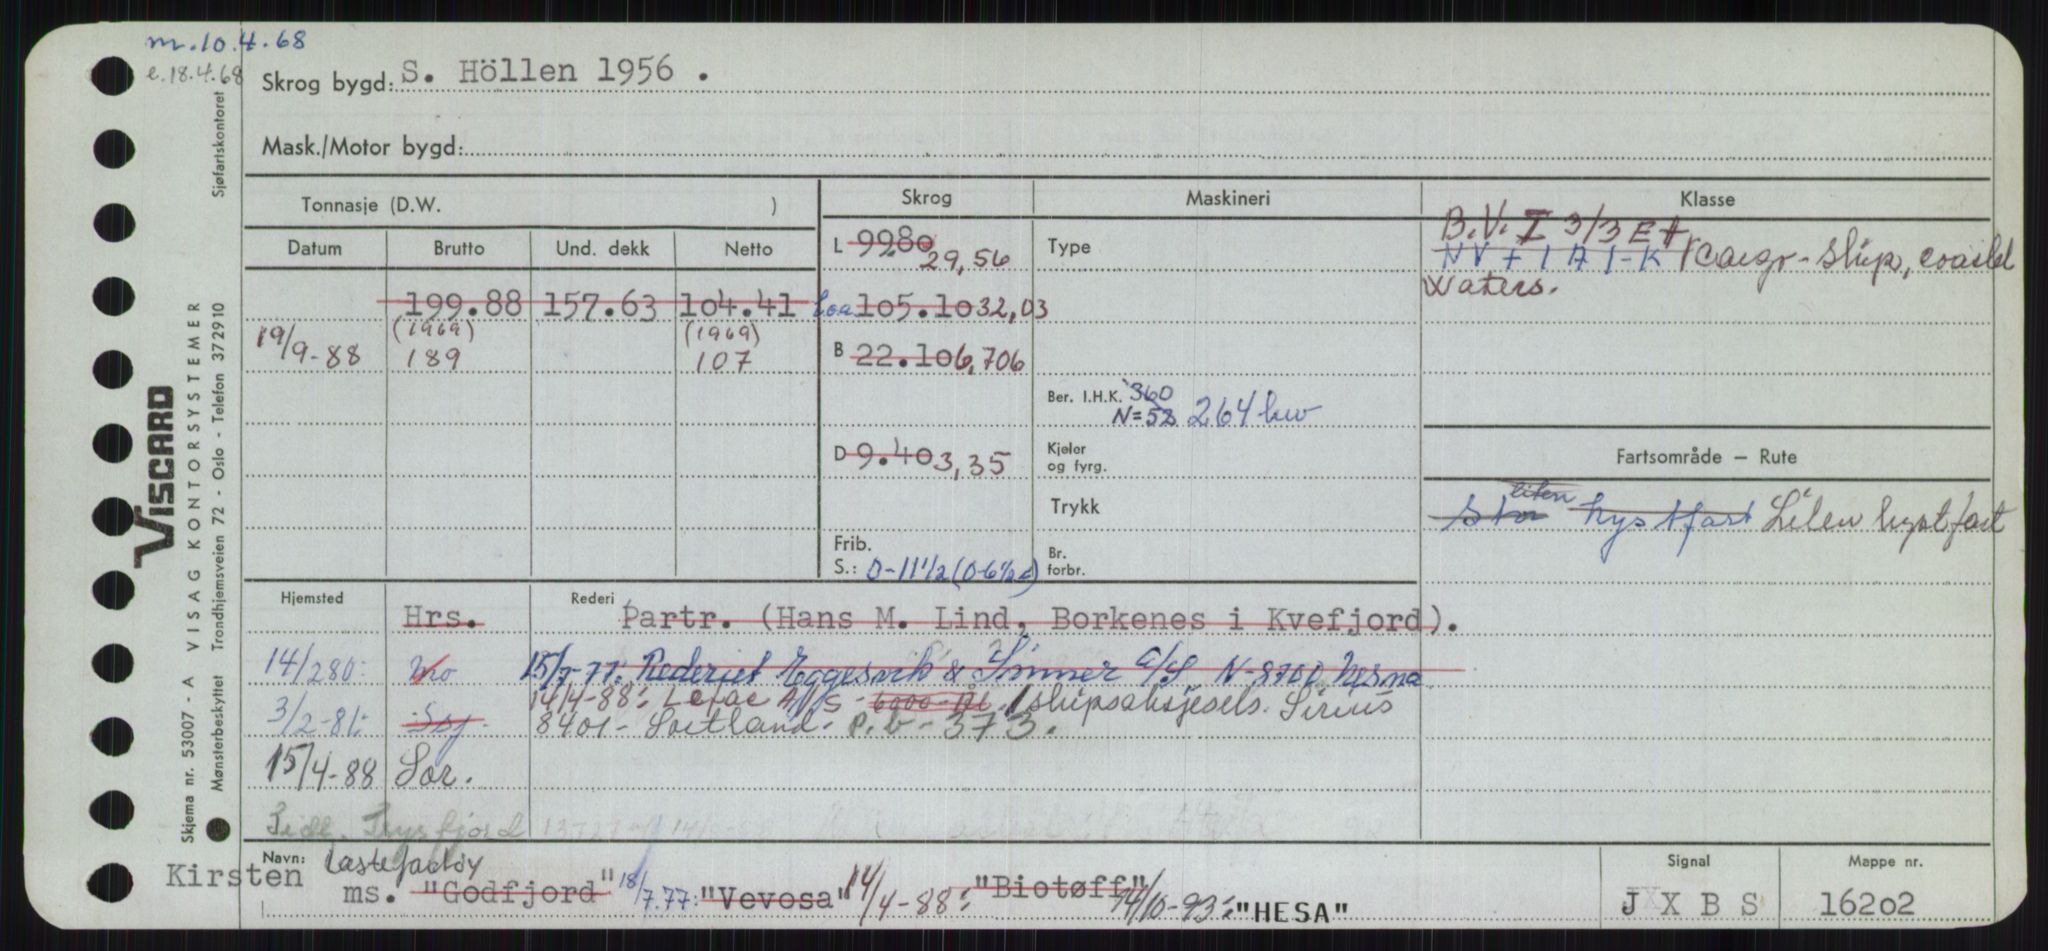 m.10.4.68
e.18.4.68
Skrog bygd: S. Höllen 1956 .
Mask./Motor bygd:
Tonnasje (D.W. )
Skrog
Maskineri
Klasse
Datum Brutto Und. dekk Netto
L 99.80 29,56
Type
B.V. I 3/3 E +
NV + 1 A 1 - K
waters.
199.88 157.63 104.41
Loa 105.10 32,03
(1969) (1969)
19/9-88 189 107
B 22.10 6,706
Ber. I.H.K. 360
N=53 264 kw
D 9.40 3,35
Kjeler
og fyrg.
Fartsområde – Rute
Trykk
liten
Stor kystfart Liten kystfart
Frib.
S.: 0-11 1/2 (0-6 1/2)
Br.
forbr.
Hjemsted
Rederi
Hrs. Partr. (Hans M. Lind, Borkenes i Kvefjord).
14/2 80: Mo 15/7-77: Rederiet Eggesvik & Sinner A/S N-8700 Nesna
14/4-88: Lefac A/S - 6000-Ål. / skipsaksjesels. Sirius
3/2-81: Ssj 8401 - Sortland. P.b - 373.
15/4-88 Sor.
Navn: Lastefartøy
Kirsten ms. "Godfjord" 18/7.77: "Vevosa" 14/4-88: "Biotøff" 14/10-93: "HESA"
Signal
J X B S
Mappe nr.
16202
VISCARD
Skjema nr. 53007 - A VISAG KONTORSYSTEMER
Mønsterbeskyttet Trondhjemsveien 72 - Oslo - Telefon 372910 Sjøfartskontoret